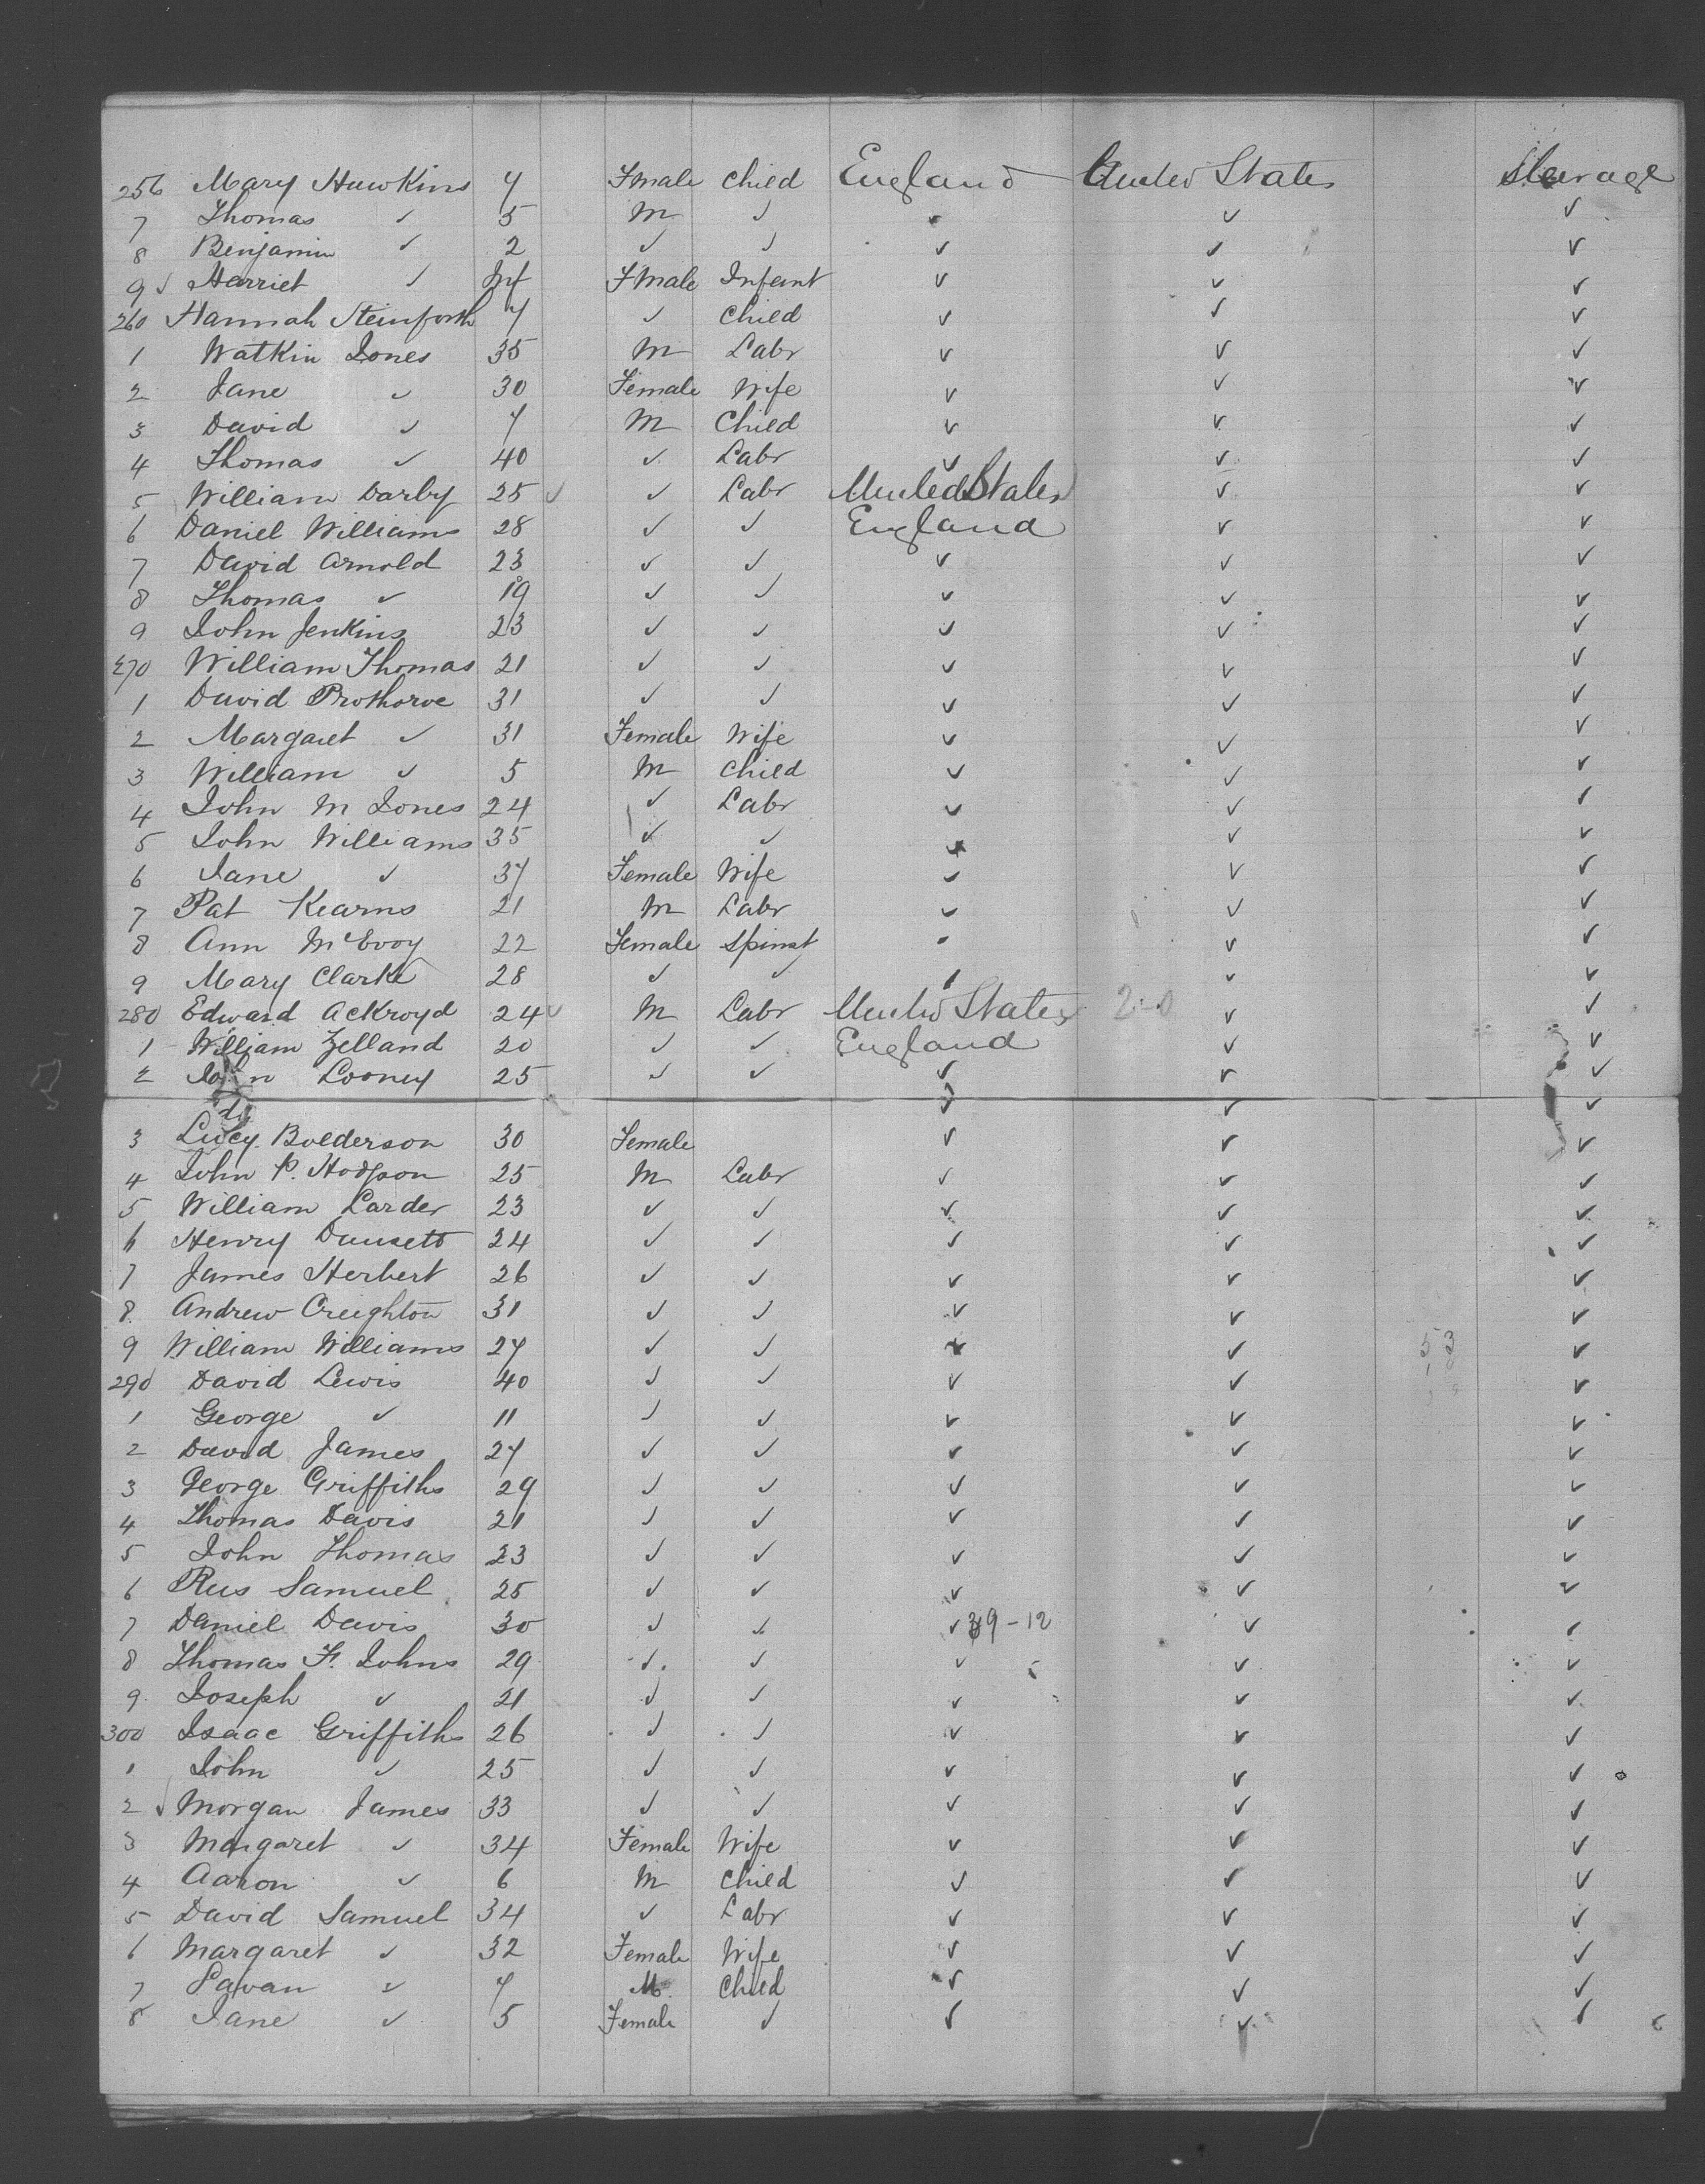 256 Mary Hawkins 7 Fmale Child England United States Steerage
7 Thomas ✓ 5 M ✓ ✓ ✓ ✓
8 Benjamin ✓ 2 ✓ ✓ ✓ ✓ ✓
9 ✓ Harriet ✓ Inf Fmale Infant ✓ ✓ ✓
260 Hannah Steinforth 7 ✓ Child ✓ ✓ ✓
1 Watkin Jones 35 M Labr ✓ ✓ ✓
2 Jane ✓ 30 Female Wife ✓ ✓ ✓
3 David ✓ 7 M Child ✓ ✓ ✓
4 Thomas ✓ 40 ✓ Labr ✓ ✓ ✓
5 William Darby 25 ✓ ✓ Labr United States ✓ ✓
6 Daniel Williams 28 ✓ ✓ England ✓ ✓
7 David Arnold 23 ✓ ✓ ✓ ✓ ✓
8 Thomas ✓ 19 ✓ ✓ ✓ ✓ ✓
9 John Jenkins 23 ✓ ✓ ✓ ✓ ✓
270 William Thomas 21 ✓ ✓ ✓ ✓ ✓
1 David Prothorve 31 ✓ ✓ ✓ ✓ ✓
2 Margaret ✓ 31 Female Wife ✓ ✓ ✓
3 William ✓ 5 M Child ✓ ✓ ✓
4 John M Jones 24 ✓ Labr ✓ ✓ ✓
5 John Williams 35 ✓ ✓ ✓ ✓ ✓
6 Jane ✓ 37 Female Wife ✓ ✓ ✓
7 Pat Kearns 21 M Labr ✓ ✓ ✓
8 Ann McEvoy 22 Female Spinst ✓ ✓ ✓
9 Mary Clarke 28 ✓ ✓ ✓ ✓ ✓
280 Edward Ackroyd 24 ✓ M Labr United States 2-0 ✓ ✓
1 William Zelland 20 ✓ ✓ England ✓ ✓
2 John Looney 25 ✓ ✓ ✓ ✓ ✓
✓ ✓ ✓
3 Lucy Bolderson 30 Female ✓ ✓ ✓
4 John P. Hodgson 25 M Labr ✓ ✓ ✓
5 William Larder 23 ✓ ✓ ✓ ✓ ✓
6 Henry Dunsett 24 ✓ ✓ ✓ ✓ ✓
7 James Herbert 26 ✓ ✓ ✓ ✓ ✓
8 Andrew Creighton 31 ✓ ✓ ✓ ✓ ✓
9 William Williams 27 ✓ ✓ ✓ ✓ 53 ✓
290 David Lewis 40 ✓ ✓ ✓ ✓ ✓
1 George ✓ 11 ✓ ✓ ✓ ✓ ✓
2 David James 27 ✓ ✓ ✓ ✓ ✓
3 George Griffiths 29 ✓ ✓ ✓ ✓ ✓
4 Thomas Davis 21 ✓ ✓ ✓ ✓ ✓
5 John Thomas 23 ✓ ✓ ✓ ✓ ✓
6 Rus Samuel 25 ✓ ✓ ✓ ✓ ✓
7 Daniel Davis 30 ✓ ✓ ✓ 39-12 ✓ ✓
8 Thomas F. Johns 29 ✓ ✓ ✓ ✓ ✓
9 Joseph ✓ 21 ✓ ✓ ✓ ✓ ✓
300 Isaac Griffiths 26 ✓ ✓ ✓ ✓ ✓
1 John ✓ 25 ✓ ✓ ✓ ✓ ✓
2 ✓ Morgan James 33 ✓ ✓ ✓ ✓ ✓
3 Margaret ✓ 34 Female Wife ✓ ✓ ✓
4 Aaron ✓ 6 M Child ✓ ✓ ✓
5 David Samuel 34 ✓ Labr ✓ ✓ ✓
6 Margaret ✓ 32 Female Wife ✓ ✓ ✓
7 ✓ 7 M Child ✓ ✓ ✓
8 Jane ✓ 5 Female ✓ ✓ ✓ ✓